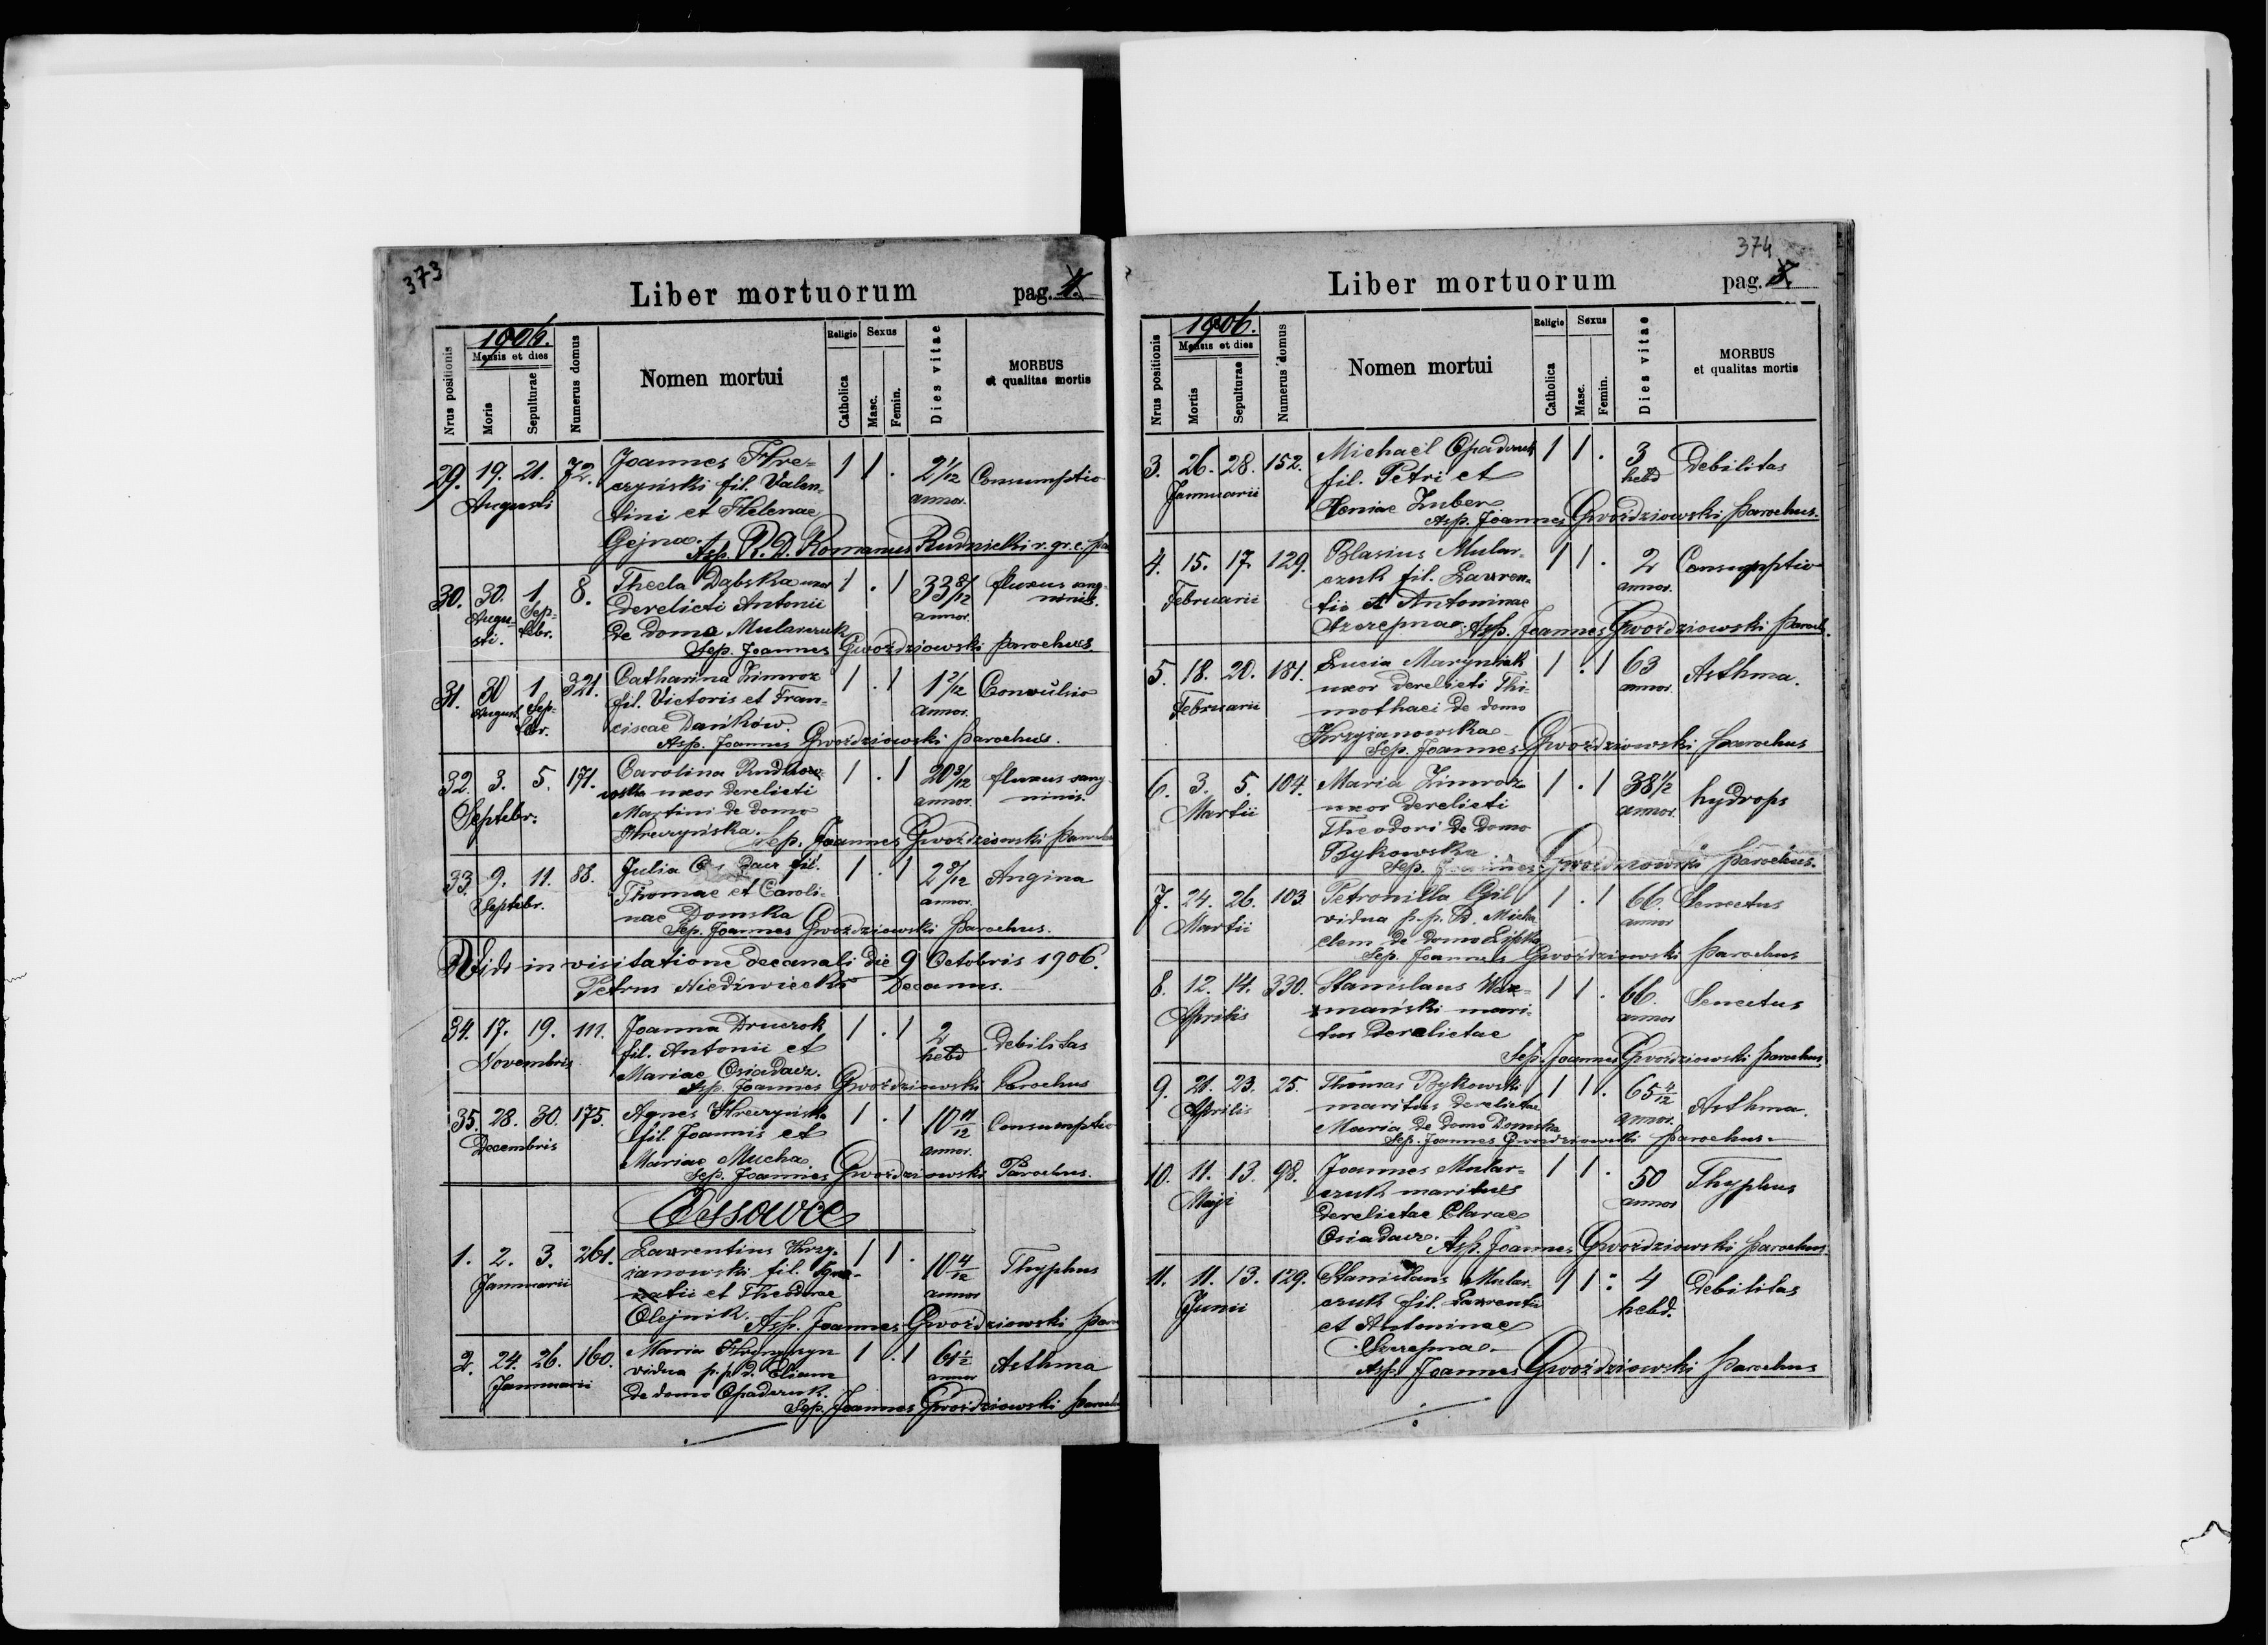 373
Liber mortuorum pag. 4.
Nrus positionis
1906.
Mensis et dies
Moris
Sepulturae
Numerus domus
Nomen mortui
Religio
Catholica
Sexus
Masc.
Femin.
Dies vitae
MORBUS
et qualitas mortis
29. 19. 21. 72. Joannes Hre- 1 1 . 2 1/12 Consumptio
Augusti czyński fil. Valen- annor.
tini et Helenae
Gejna.
Asp. R. D. Romanus Rudnicki r. gr. c.
30. 30. 1. 8. Thecla Dąbska uxor 1 . 1 33 8/12 fluxus sang-
Augu- Sep- derelicti Antonii annor. ninis.
sti. tebr. de domo Mularczuk
Sep. Joannes Gwoździowski parochus
31. 30 1 321. Catharina Zimroz 1 . 1 1 2/12 Convulsio
August. Sep- fil. Victoris et Fran- annor.
tebr. ciscae Dańków.
Asp. Joannes Gwoździowski parochus.
32. 3. 5. 171. Carolina Rudkow- 1 . 1 20 3/12 fluxus sang-
Septebr: wska uxor derelicti annor. ninis.
Martini de domo
Hreczyńska.
Sep. Joannes Gwoździowski
33. 9. 11. 88. Julia fil. 1 . 1 2 8/12 Angina
Septebr. Thomae et Caroli- annor.
nae Domska
Sep. Joannes Gwoździowski parochus.
Vidi in visitatione decanali die 9 Octobris 1906.
Petrus Niedźwiecki Decanus.
34. 17. 19. 111. Joanna Druczok 1 . 1 2 Debilitas
Novembris fil. Antonii et hebd
Mariae Osiadacz.
Asp. Joannes Gwoździowski Parochus
35. 28. 30. 175. Agnes Hreczyńska 1 . 1 10 11/12 Consumptio
Decembris fil. Joannis et annor.
Mariae Mucha
Sep. Joannes Gwoździowski Parochus.
1. 2. 3. 261. Laurentius Krzy- 1 1 . 10 4/12 Thyphus
Januarii żanowski fil. Igna- annor
natii et Theodorae
Olejnik.
Asp. Joannes Gwoździowski
2. 24. 26. 160. Maria 1 . 1 61 1/2 Asthma
Januarii vidua p. p. d. Eliam annor
de domo Opadczuk.
Sep. Joannes Gwoździowski
374
Liber mortuorum pag. 5.
Nrus positionis
1906.
Mensis et dies
Mortis
Sepulturae
Numerus domus
Nomen mortui
Religio
Catholica
Sexus
Masc.
Femin.
Dies vitae
MORBUS
et qualitas mortis
3. 26. 28. 152. Michaël Opadczuk 1 1 . 3 Debilitas
Januarii fil. Petri et hebd
Xeniae Zuber
Asp. Joannes Gwoździowski parochus.
4. 15. 17. 129. Blasius Mular- 1 1 . 2 Consumptio
Februarii czuk fil. Lauren- annor.
tii et Antoninae
Szczepna.
Asp. Joannes Gwoździowski
5. 18. 20. 181. Lucia Maryniak 1 . 1 63 Asthma.
Februarii uxor derelicti Thi- annor.
mothaei de domo
Krzyżanowska
Sep. Joannes Gwoździowski parochus
6. 3. 5. 104. Maria Zimroz 1 . 1 38 1/2 hydrops
Martii uxor derelicti annor.
Theodori de domo
Bykowska
Sep. Joannes Gwoździowski parochus.
7. 24. 26. 103 Petronilla Gil 1 . 1 66. Senectus
Martii vidua p. p. D. Micha annor
elem de domo Lipska
Sep. Joannes Gwoździowski parochus
8. 12. 14. 330. Stanislaus Wax- 1 1 . 66. Senectus
Aprilis mański mari- annor
tus derelictae
Sep. Joannes Gwoździowski parochus
9. 21. 23. 25. Thomas Bykowski 1 1 . 65 4/12 Asthma.
Aprilis maritus derelictae annor.
Maria de domo Domska
Sep. Joannes Gwoździowski parochus.
10. 11. 13. 98. Joannes Mular- 1 1 . 50 Thyphus
Maji czuk maritus annor
derelictae Clarae
Osiadacz.
Asp. Joannes Gwoździowski parochus
11. 11. 13. 129. Stanislaus Mular- 1 1 : 4 Debilitas
Junii czuk fil. Laurentii hebd.
et Antoninae
Szczepna.
Asp. Joannes Gwoździowski parochus